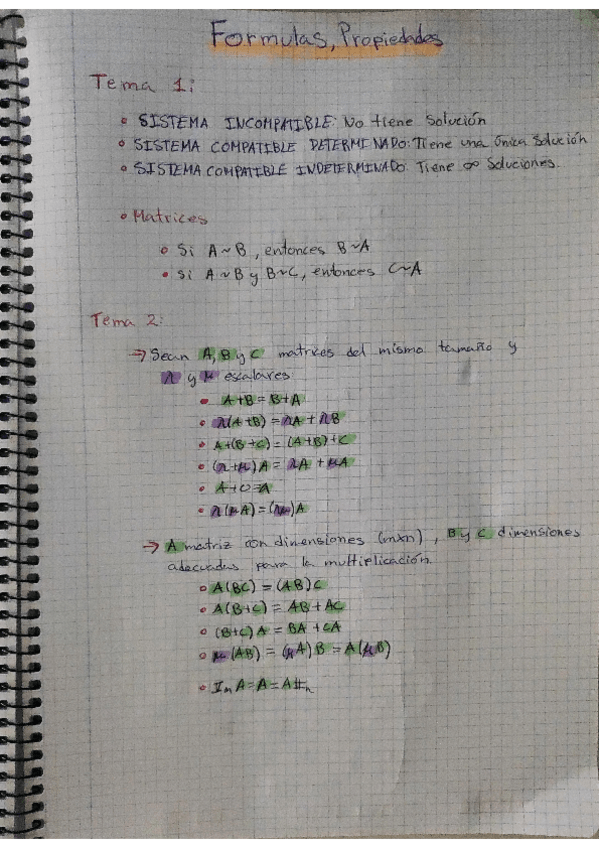 Formulas, Propiedades
Tema 1:
• SISTEMA INCOMPATIBLE: No tiene Solución
• SISTEMA COMPATIBLE DETERMINADO: Tiene una única Solución
• SISTEMA COMPATIBLE INDETERMINADO: Tiene ∞ Soluciones.
• Matrices
• Si A~B, entonces B~A
• Si A~B y B~C, entonces C~A
Tema 2:
→ Sean A, B y C matrices del mismo tamaño y
λ y μ escalares
• A+B = B+A
• λ(A+B) = λA + λB
• A+(B+C) = (A+B)+C
• (λ+μ)A = λA + μA
• A+0=A
• λ(μA) = (λμ)A
→ A matriz con dimensiones (mxn), B y C dimensiones
adecuadas para la multiplicación.
• A(BC) = (AB)C
• A(B+C) = AB + AC
• (B+C)A = BA + CA
• μ(AB) = (μA)B = A(μB)
• Iₘ A = A = A Iₙ